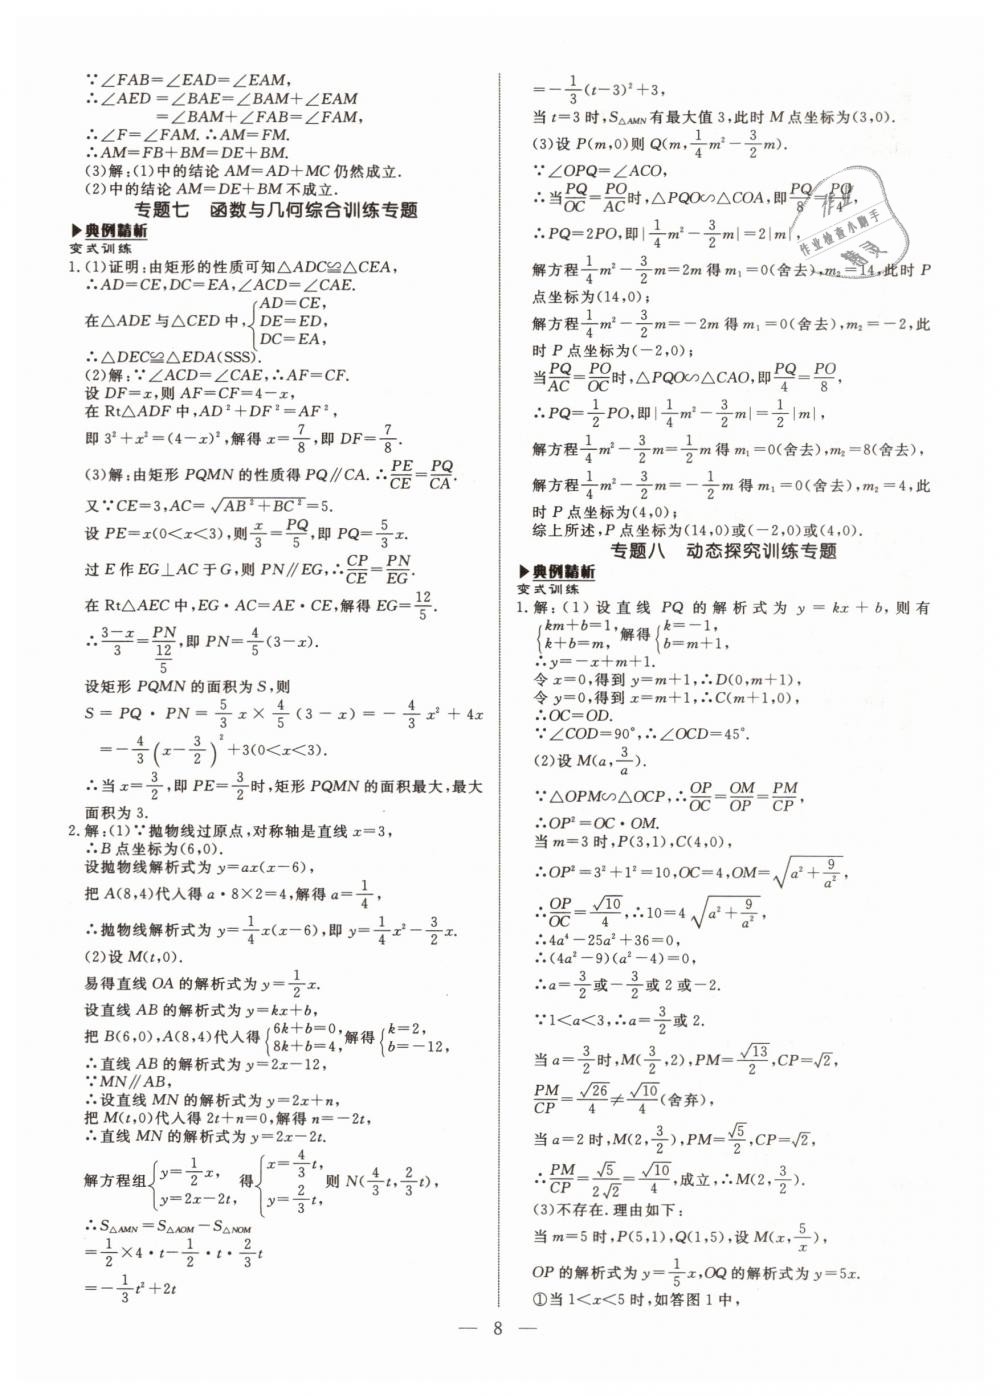 ∵∠FAB=∠EAD=∠EAM,
∴∠AED =∠BAE=∠BAM+∠EAM
=∠BAM+∠FAB=∠FAM,
∴∠F=∠FAM.∴AM=FM.
∴AM=FB+BM=DE+BM.
(3)解:(1)中的结论 AM=AD+MC 仍然成立.
(2)中的结论 AM=DE+BM 不成立.
专题七 函数与几何综合训练专题
▶典例精析
变式训练
1.(1)证明:由矩形的性质可知△ADC≌△CEA,
∴AD=CE,DC=EA,∠ACD=∠CAE.
在△ADE 与△CED 中,{AD=CE, DE=ED, DC=EA,
∴△DEC≌△EDA(SSS).
(2)解:∵∠ACD=∠CAE,∴AF=CF.
设 DF=x,则 AF=CF=4-x,
在 Rt△ADF 中,AD²+DF²=AF²,
即 3²+x²=(4-x)²,解得 x=7/8,即 DF=7/8.
(3)解:由矩形 PQMN 的性质得 PQ∥CA.∴PE/CE=PQ/CA.
又∵CE=3,AC=√(AB²+BC²)=5.
设 PE=x(0<x<3),则 x/3=PQ/5,即 PQ=5/3x.
过 E 作 EG⊥AC 于 G,则 PN∥EG,∴CP/CE=PN/EG.
在 Rt△AEC 中,EG·AC=AE·CE,解得 EG=12/5.
∴(3-x)/3=PN/(12/5),即 PN=4/5(3-x).
设矩形 PQMN 的面积为 S,则
S = PQ · PN = 5/3 x × 4/5 (3 - x) = - 4/3 x² + 4x
=-4/3(x-3/2)²+3(0<x<3).
∴当 x=3/2,即 PE=3/2时,矩形 PQMN 的面积最大,最大
面积为 3.
2.解:(1)∵抛物线过原点,对称轴是直线 x=3,
∴B 点坐标为(6,0).
设抛物线解析式为 y=ax(x-6),
把 A(8,4)代入得 a·8×2=4,解得 a=1/4,
∴抛物线解析式为 y=1/4x(x-6),即 y=1/4x²-3/2x.
(2)设 M(t,0).
易得直线 OA 的解析式为 y=1/2x.
设直线 AB 的解析式为 y=kx+b,
把 B(6,0),A(8,4)代入得{6k+b=0, 8k+b=4,解得{k=2, b=-12,
∴直线 AB 的解析式为 y=2x-12,
∵MN∥AB,
∴设直线 MN 的解析式为 y=2x+n,
把 M(t,0)代入得 2t+n=0,解得 n=-2t,
∴直线 MN 的解析式为 y=2x-2t.
解方程组{y=1/2x, y=2x-2t, 得{x=4/3t, y=2/3t, 则 N(4/3t,2/3t),
∴S△AMN=S△AOM-S△NOM
=1/2×4·t-1/2·t·2/3t
=-1/3t²+2t
=-1/3(t-3)²+3,
当 t=3 时,S△AMN有最大值 3,此时 M 点坐标为(3,0).
(3)设 P(m,0)则 Q(m,1/4m²-3/2m).
∵∠OPQ=∠ACO,
∴当PQ/OC=PO/AC时,△PQO∽△COA,即PQ/8=PO/4,
∴PQ=2PO,即|1/4m²-3/2m|=2|m|,
解方程1/4m²-3/2m=2m 得 m₁=0(舍去),m₂=14,此时 P
点坐标为(14,0);
解方程1/4m²-3/2m=-2m 得 m₁=0(舍去),m₂=-2,此
时 P 点坐标为(-2,0);
当PQ/AC=PO/OC时,△PQO∽△CAO,即PQ/4=PO/8,
∴PQ=1/2PO,即|1/4m²-3/2m|=1/2|m|,
解方程1/4m²-3/2m=1/2m 得 m₁=0(舍去),m₂=8(舍去),
解方程1/4m²-3/2m=-1/2m 得 m₁=0(舍去),m₂=4,此
时 P 点坐标为(4,0);
综上所述,P 点坐标为(14,0)或(-2,0)或(4,0).
专题八 动态探究训练专题
▶典例精析
变式训练
1.解:(1) 设直线 PQ 的解析式为 y = kx + b, 则有
{km+b=1, k+b=m, 解得{k=-1, b=m+1,
∴y=-x+m+1.
令 x=0,得到 y=m+1,∴D(0,m+1),
令 y=0,得到 x=m+1,∴C(m+1,0),
∴OC=OD.
∵∠COD=90°,∴∠OCD=45°.
(2)设 M(a,3/a).
∵△OPM∽△OCP,∴OP/OC=OM/OP=PM/CP,
∴OP²=OC·OM.
当 m=3 时,P(3,1),C(4,0),
∴OP²=3²+1²=10,OC=4,OM=√(a²+9/a²),
∴OP/OC=√10/4,∴10=4√(a²+9/a²),
∴4a⁴-25a²+36=0,
∴(4a²-9)(a²-4)=0,
∴a=3/2或-3/2或 2 或-2.
∵1<a<3,∴a=3/2或 2.
当 a=3/2时,M(3/2,2),PM=√13/2,CP=√2,
PM/CP=√26/4≠√10/4(舍弃),
当 a=2 时,M(2,3/2),PM=√5/2,CP=√2,
∴PM/CP=√5/2√2=√10/4,成立,∴M(2,3/2).
(3)不存在.理由如下:
当 m=5 时,P(5,1),Q(1,5),设 M(x,5/x),
OP 的解析式为 y=1/5x,OQ 的解析式为 y=5x.
①当 1<x<5 时,如答图 1 中,
— 8 —
作业
作业检查小助手
精灵